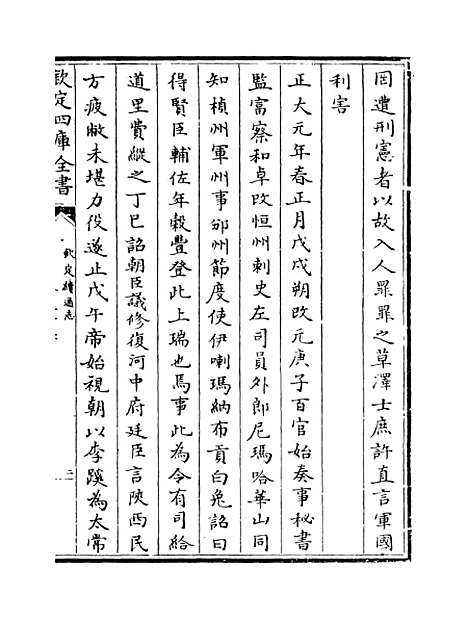 罔遭刑憲者以故入人罪罪之草澤士庶許直言軍國
利害
正大元年春正月戊戌朔改元庚子百官始奏事秘書
監富察和卓改恒州刺史左司員外郎尼瑪哈華山同
知楨州軍州事邠州節度使伊喇瑪納布貢白兎詔曰
得賢臣輔佐年穀豐登此上瑞也焉事此為令有司給
道里費縱之丁巳詔朝臣議修復河中府廷臣言陝西民
方疲敝未堪力役遂止戊午帝始視朝以李蹊為太常
欽定四庫全書
欽定續通志
二